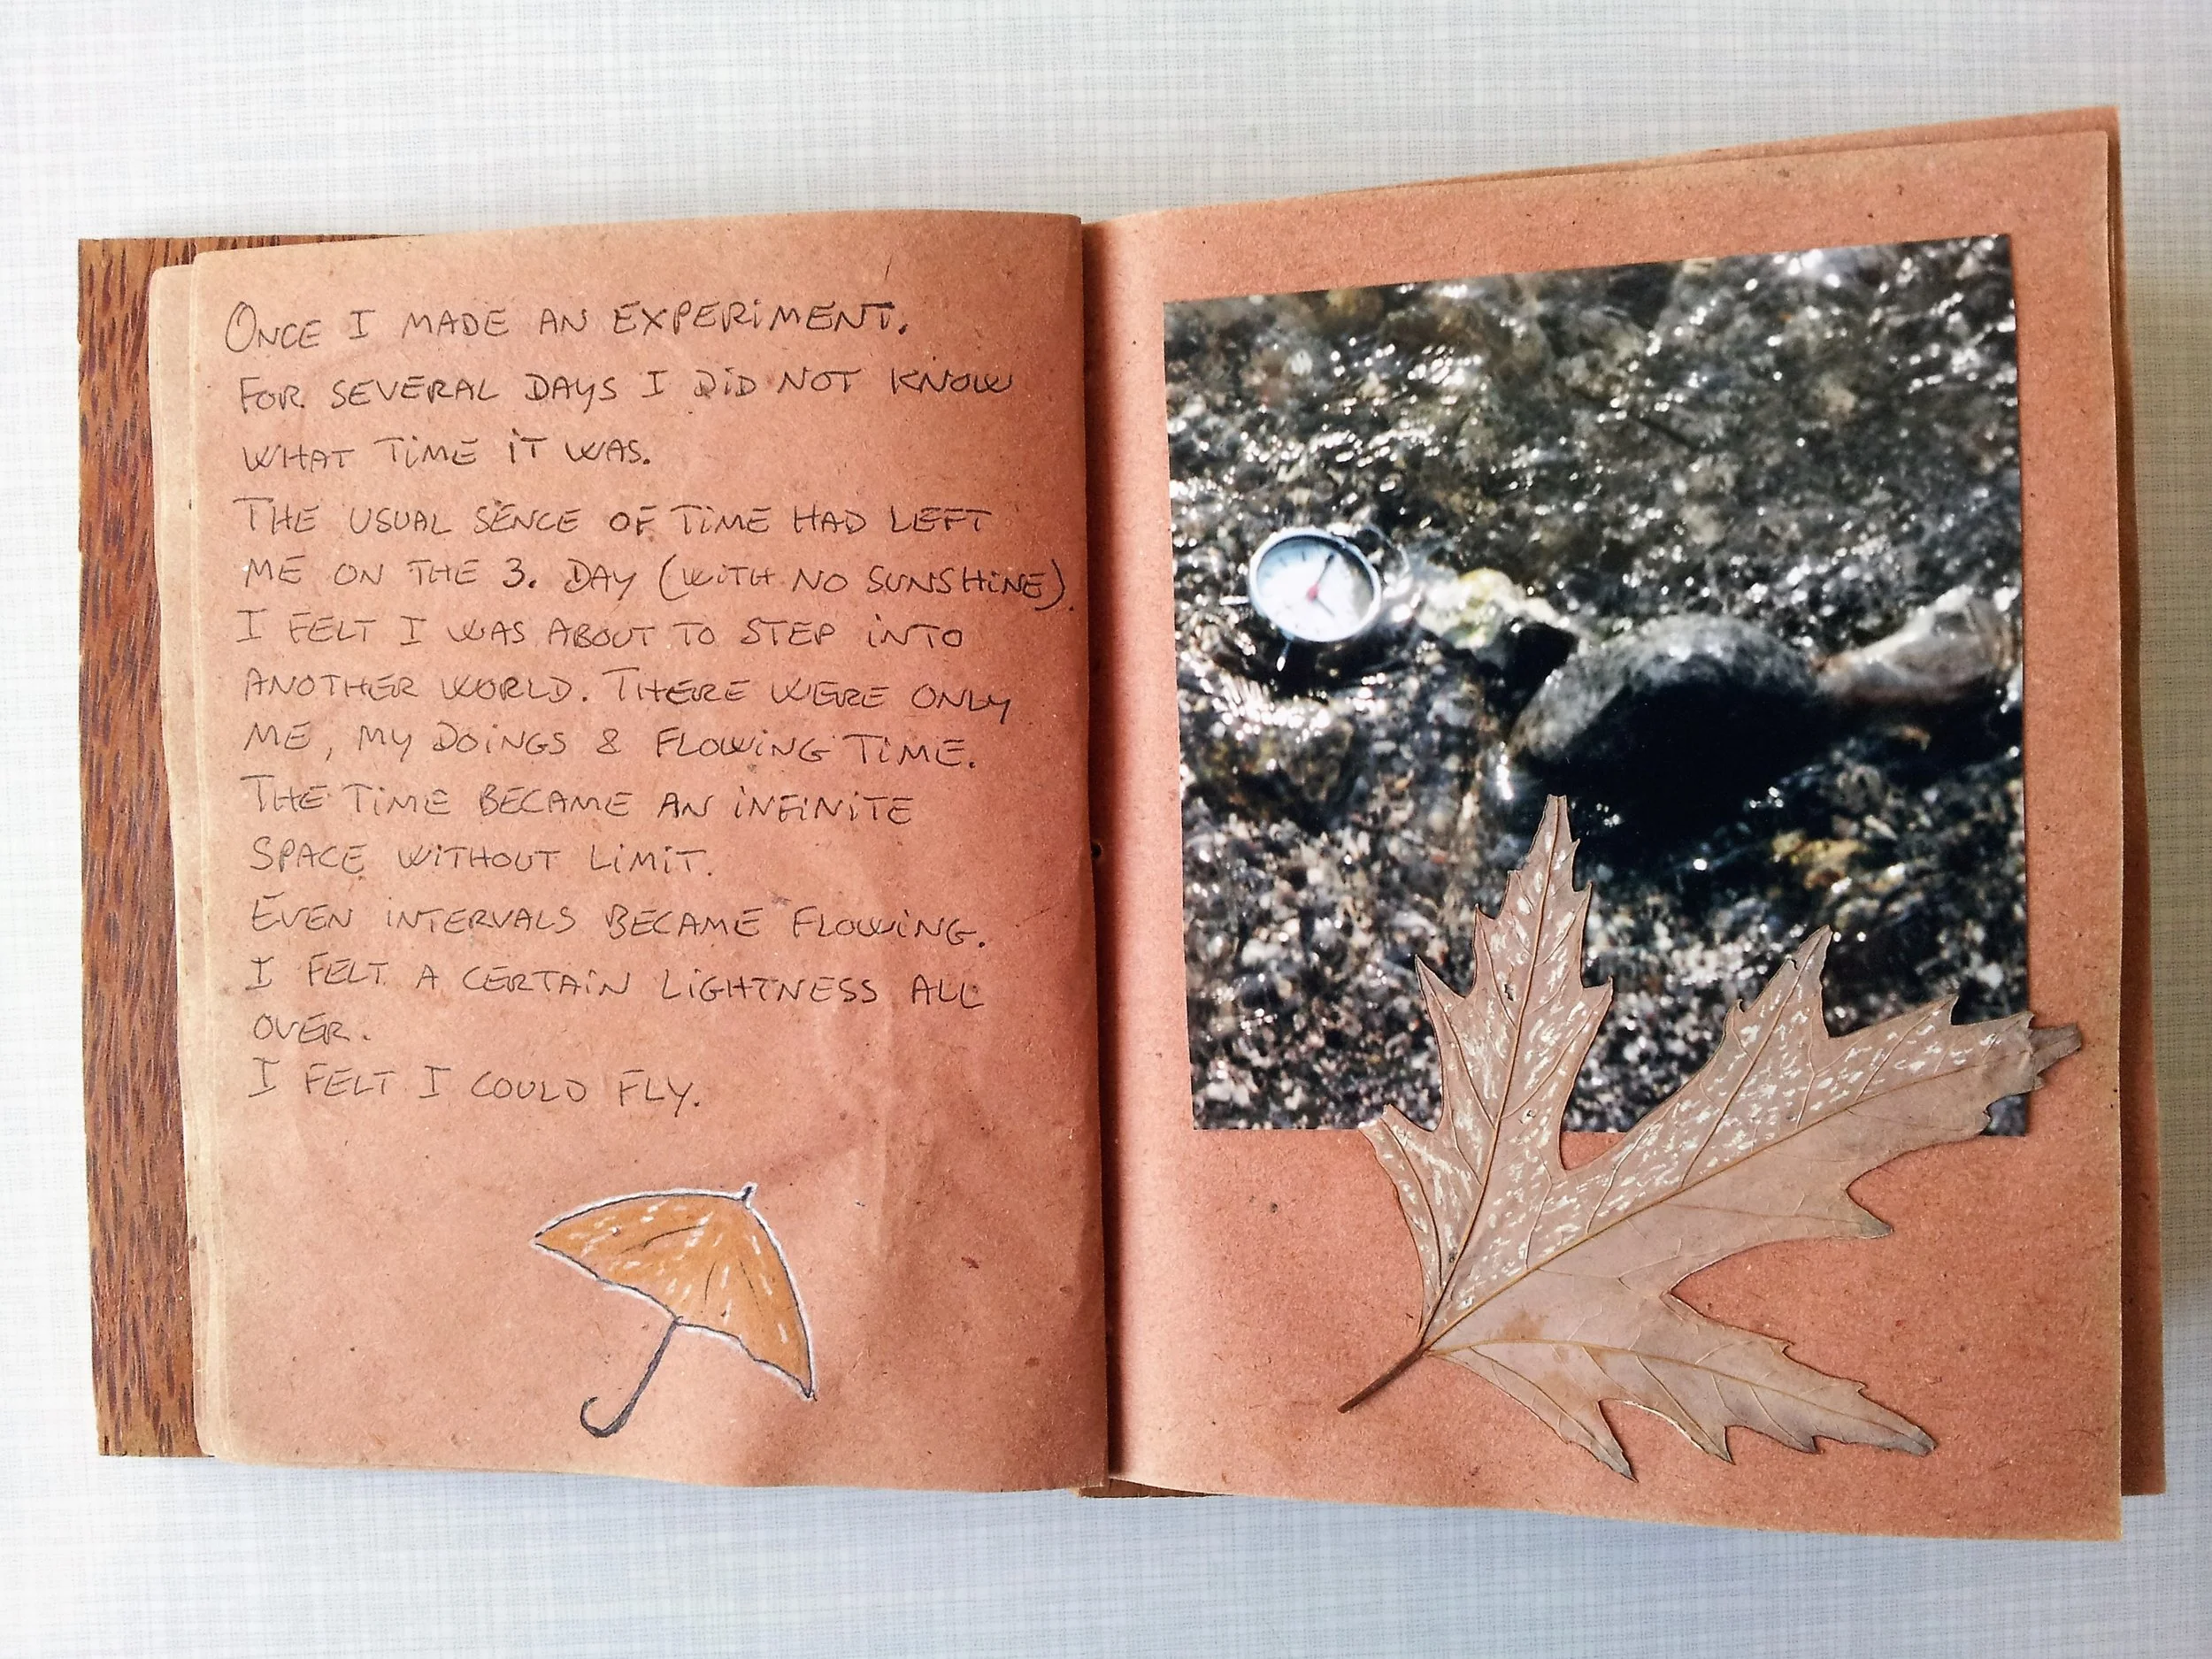 ONCE I MADE AN EXPERIMENT.
FOR SEVERAL DAYS I DID NOT KNOW
WHAT TIME IT WAS.
THE USUAL SENCE OF TIME HAD LEFT
ME ON THE 3. DAY (WITH NO SUNSHINE).
I FELT I WAS ABOUT TO STEP INTO
ANOTHER WORLD. THERE WERE ONLY
ME, MY DOINGS & FLOWING TIME.
THE TIME BECAME AN INFINITE
SPACE WITHOUT LIMIT.
EVEN INTERVALS BECAME FLOWING.
I FELT A CERTAIN LIGHTNESS ALL
OVER.
I FELT I COULD FLY.